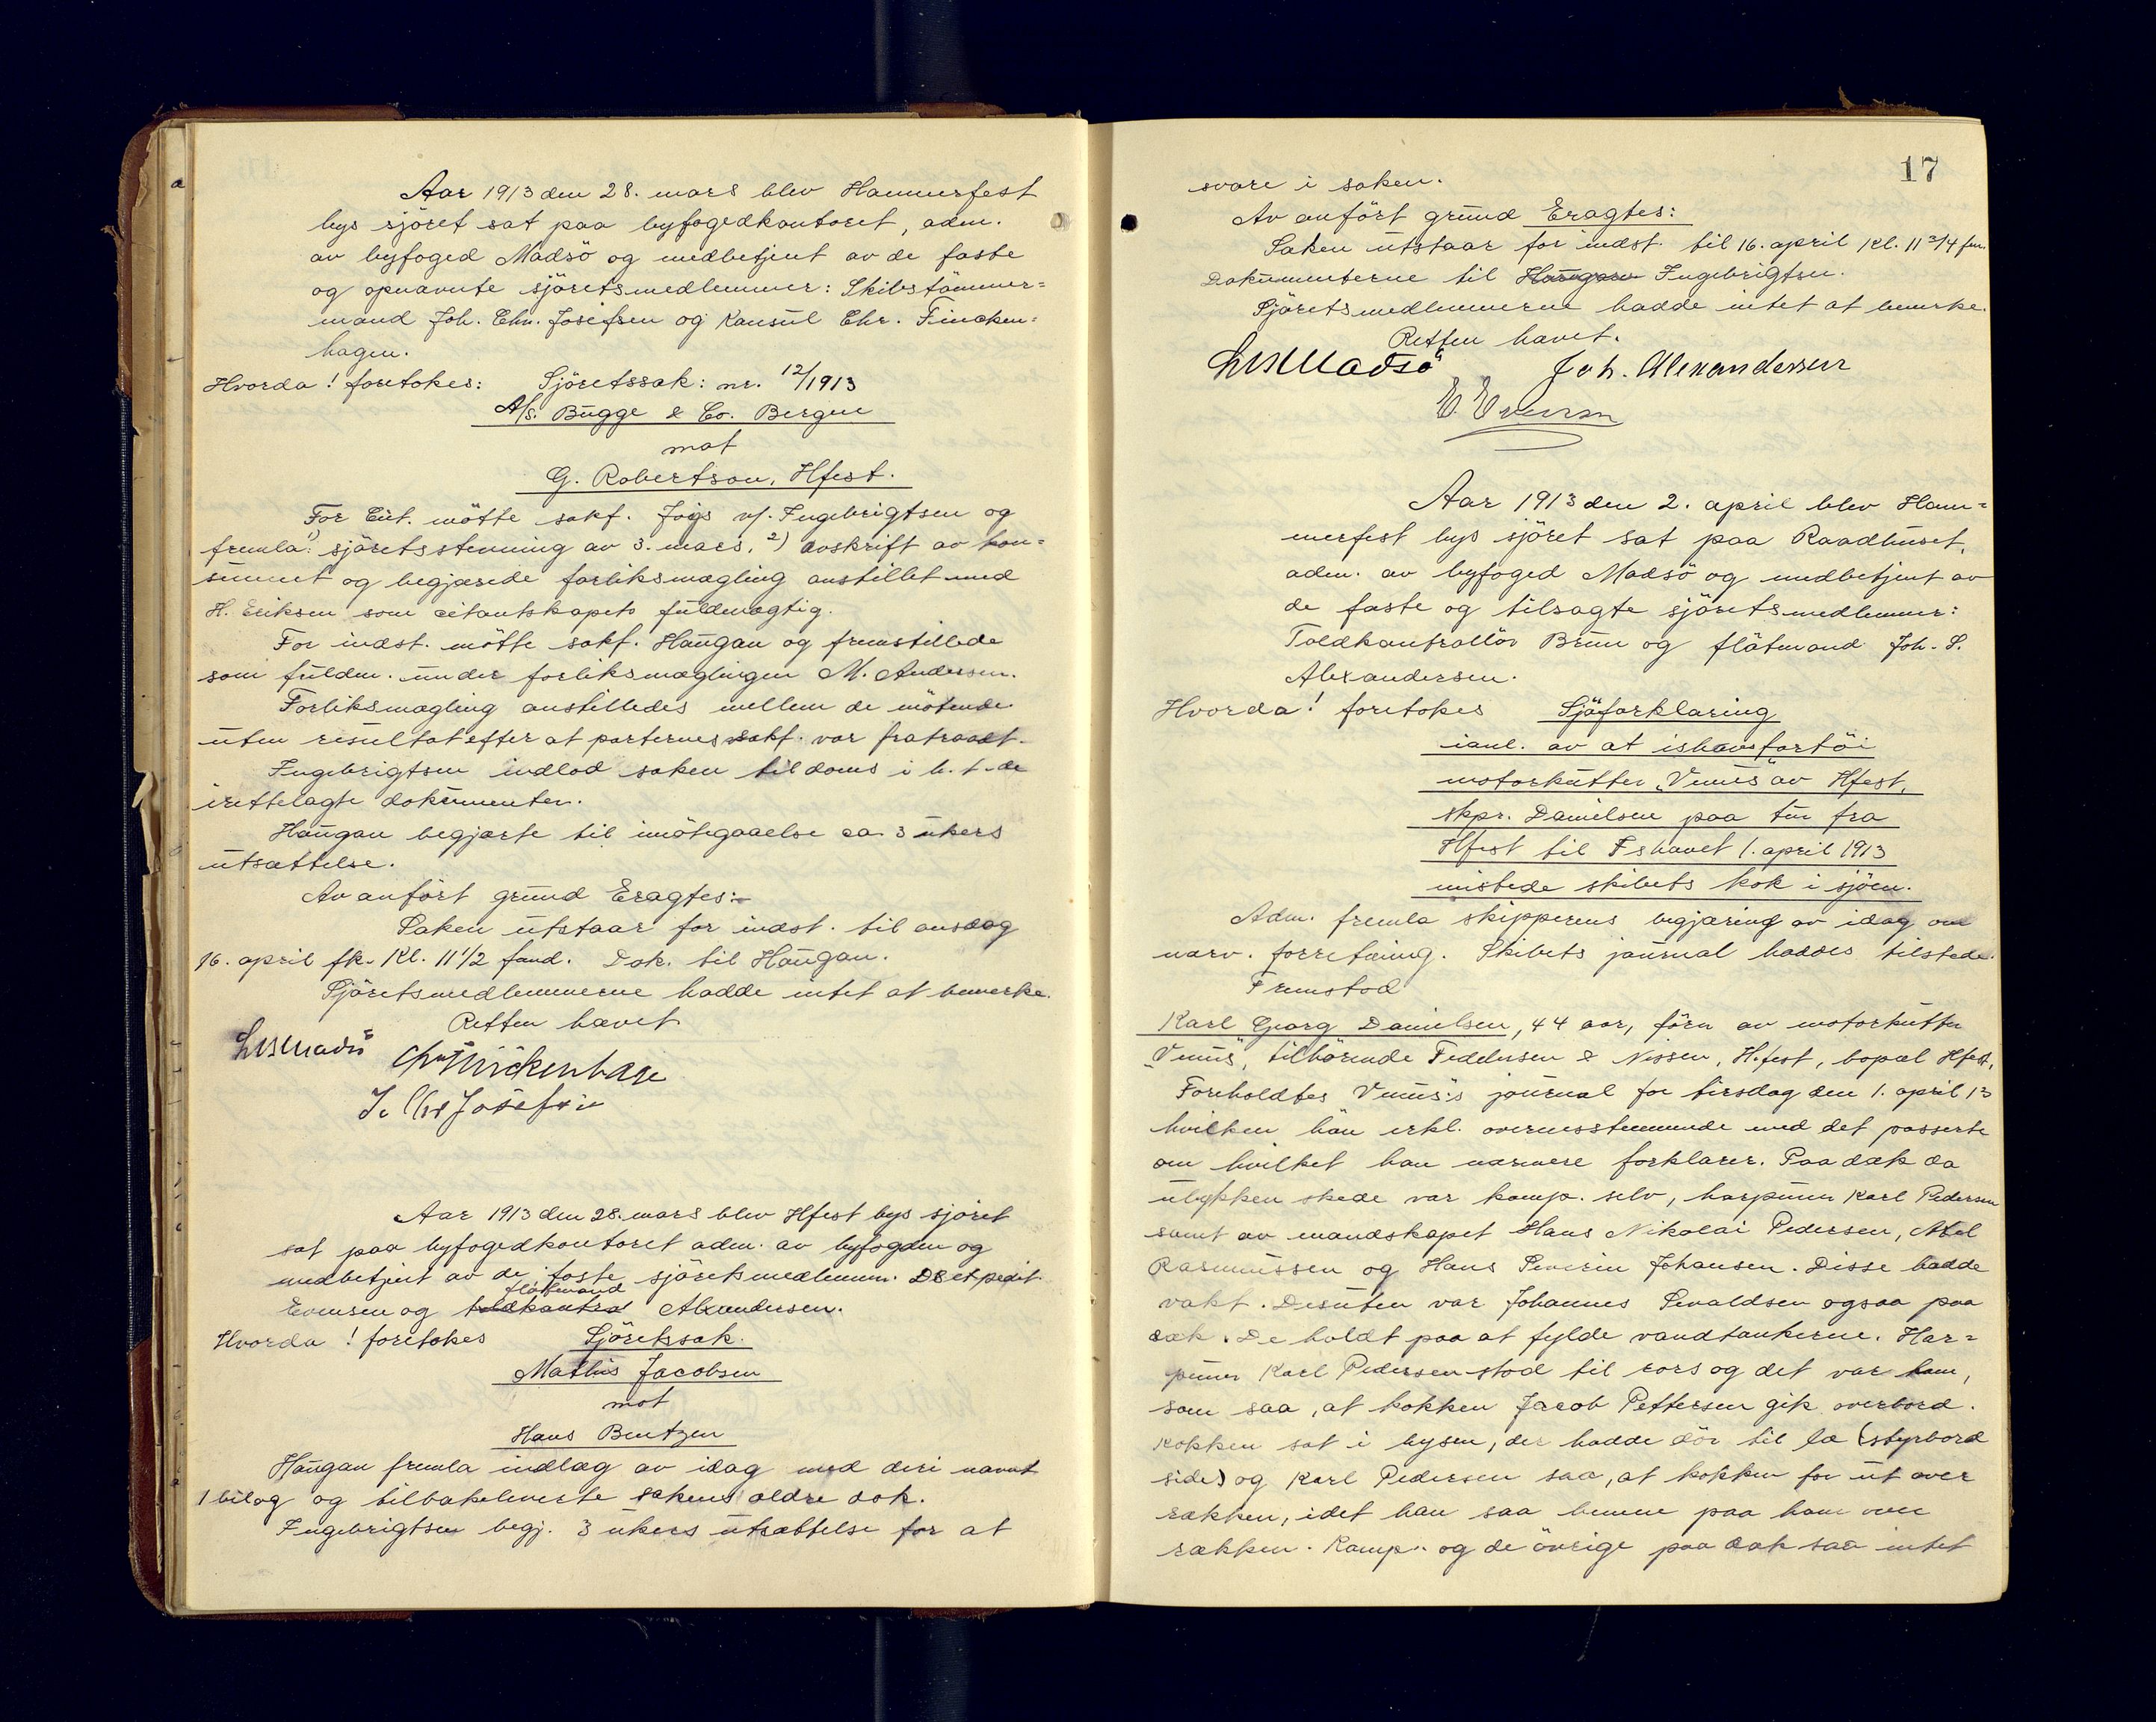 Aar 1913 den 28. mars blev Hammerfest
bys sjöret sat paa byfogedkontoret, adm.
av byfoged Madsö og medbetjent av de faste
og opnævnte sjöretsmedlemmer: Skibstömmer=
mand Joh. Chr. Josefsen og Konsul Chr. Fincken=
hagen.
Hvorda! foretokes: Sjöretssak: nr. 12/1913
A/S. Bugge & Co. Bergen
mot
G. Robertson, Hfest.
For Cit. mötte sakf. Joijs v/. Ingebrigtsen og
fremla 1) sjöretsstevning av 3. mars, 2) avskrift av kon=
sumet og begjærede forliksmægling anstillet med
H. Eriksen som citantskapets fuldmægtig.
For indst. mötte sakf. Haugan og fremstillede
som fuldm. under forliksmæglingen M. Andersen.
Forliksmægling anstilledes mellem de mötende
uten resultat efter at parternes sakf. var fratraadt.
Ingebrigtsen indlod saken til doms i h. t. de
irettelagte dokumenter.
Haugan begjærte til imötegaaelse ca. 3 ukers
utsættelse.
Av anfört grund Eragtes:
Saken utstaar for indst. til onsdag
16. april fk. Kl. 11 1/2 fmd. Dok. til Haugan.
Sjöretsmedlemmerne hadde intet at bemerke.
Retten hævet.
LMMadsö Chr Finckenhage
J. Chr Josefsen
Aar 1913 den 28. mars blev Hfest bys sjöret
sat paa byfogedkontoret adm. av byfogden og
medbetjent av de faste sjöretsmedlemm. DSexpedit.
flötmand
Evensen og toldkontro Alexandersen.
Hvorda! foretokes Sjöretssak.
Mathis Jacobsen
mot
Hans Bentzen
Haugan fremla indlæg av idag med deri nævnt
1 bilag og tilbakeleverte sakens ældre dok.
Ingebrigtsen begj. 3 ukers utsættelse for at
17
svare i saken.
Av anfört grund Eragtes:
Saken utstaar for indst. til 16. april Kl. 11 3/4 fm.
Dokumenterne til Haugan Ingebrigtsen.
Sjöretsmedlemmerne hadde intet at bemerke.
Retten hævet.
LMMadsö Joh. Alexandersen
E Evensen
Aar 1913 den 2. april blev Ham=
merfest bys sjöret sat paa Raadhuset,
adm. av byfoged Madsö og medbetjent av
de faste og tilsagte sjöretsmedlemmer:
Toldkontrollör Brun og flötmand Joh. S.
Alexandersen.
Hvorda! foretokes Sjöforklaring
ianl. av at ishavsfartöi
motorkutter "Venus" av Hfest,
skpr. Danielsen paa tur fra
Hfest til Ishavet 1. april 1913
mistede skibets kok i sjöen.
Adm. fremla skipperens begjæring av idag om
nærv. forretning. Skibets journal haddes tilstede.
Fremstod
Karl Georg Danielsen, 44 aar, förer av motorkutter
"Venus", tilhörende Feddersen & Nissen, H.fest, bopæl Hfest.
Foreholdtes Venus's journal for tirsdag den 1. april 13
hvilken han erkl. overensstemmende med det passerte
om hvilket han nærmere forklarer. Paa dæk da
ulykken skede var komp. selv, harpuner Karl Pedersen
samt av mandskapet Hans Nikolai Pedersen, Abel
Rasmussen og Hans Severin Johansen. Disse hadde
vakt. Desuten var Johannes Sevaldsen ogsaa paa
dæk. De holdt paa at fylde vandtankerne. Har=
puner Karl Pedersen stod til rors og det var ham,
som saa, at kokken Jacob Pettersen gik overbord.
Kokken sat i bysen, der hadde dör til læ (styrbord
side) og Karl Pedersen saa, at kokken for ut over
rækken, idet han saa benene paa ham over
rækken. Komp. og de övrige paa dæk saa intet